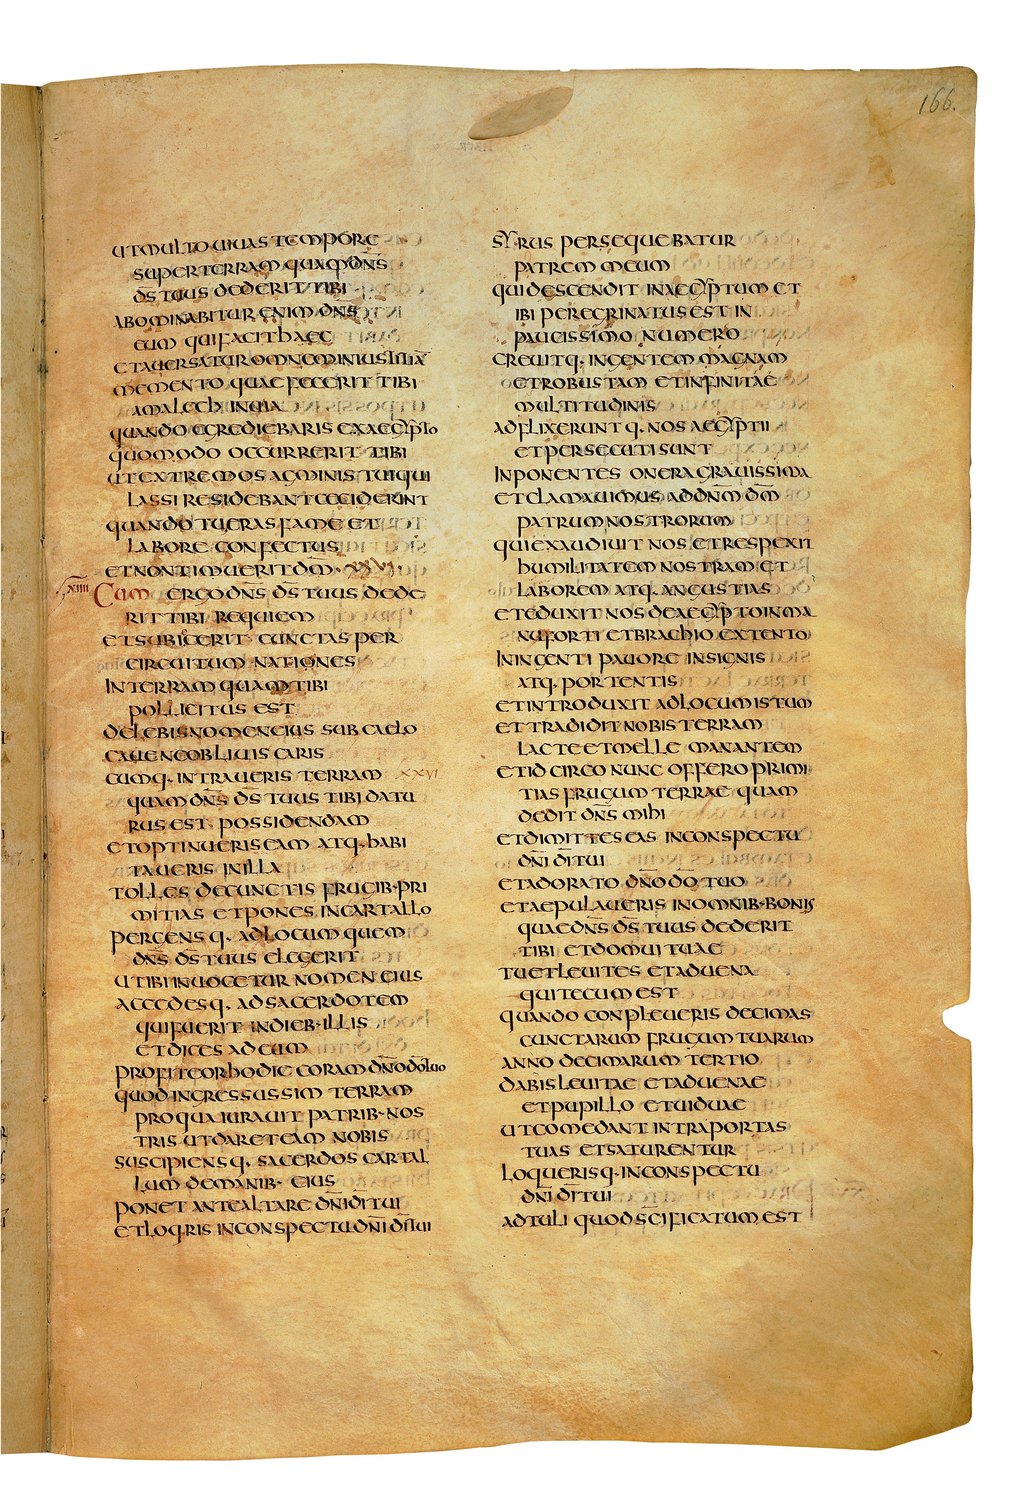 166.
UT MULTO UIUAS TEMPORE
SUPER TERRAM QUAM DN̄S
DS̄ TUUS DEDERIT TIBI
ABOMINABITUR ENIM DN̄S
EUM QUI FACIT HAEC
ET AUERSATUR OMNEM INIUSTITIĀ
MEMENTO QUAE FECERIT TIBI
AMALECH IN UIA
QUANDO EGREDIEBARIS EX AEGYPTO
QUOMODO OCCURRERIT TIBI
UT EXTREMOS AGMINIS TUI QUI
LASSI RESIDEBANT CECIDERINT
QUANDO TU ERAS FAME ET
LABORE CONFECTUS
ET NON TIMUERIT DM̄·
XXIIII CUM ERGO DN̄S DS̄ TUUS DEDE
RIT TIBI REQUIEM
ET SUBIECERIT CUNCTAS PER
CIRCUITUM NATIONES
IN TERRAM QUAM TIBI
POLLICITUS EST
DELEBIS NOMEN EIUS SUB CAELO
CAUE NE OBLIUISCARIS
CUMQ· INTRAUERIS TERRAM XXVI
QUAM DN̄S DS̄ TUUS TIBI DATU
RUS EST POSSIDENDAM
ET OPTINUERIS EAM ATQ· HABI
TAUERIS IN ILLA
TOLLES DE CUNCTIS FRUGIB· PRI
MITIAS ET PONES IN CARTALLO
PERGENSQ· AD LOCUM QUEM
DN̄S DS̄ TUUS ELEGERIT
UT IBI INUOCETUR NOMEN EIUS
ACCEDESQ· AD SACERDOTEM
QUI FUERIT IN DIEB· ILLIS
ET DICES AD EUM
PROFITEOR HODIE CORAM DN̄O DŌ TUO
QUOD INGRESSUS SIM TERRAM
PRO QUA IURAUIT PATRIB· NOS
TRIS UT DARET EAM NOBIS
SUSCIPIENSQ· SACERDOS CARTAL
LUM DE MANIB· EIUS
PONET ANTE ALTARE DN̄I DĪ TUI
ET LOQ·RIS IN CONSPECTU DN̄I DĪ TUI
SYRUS PERSEQUEBATUR
PATREM MEUM
QUI DESCENDIT IN AEGYPTUM ET
IBI PEREGRINATUS EST IN
PAUCISSIMO NUMERO
CREUITQ· IN GENTEM MAGNAM
ET ROBUSTAM ET INFINITAE
MULTITUDINIS
ADFLIXERUNTQ· NOS AEGYPTII
ET PERSECUTI SUNT
INPONENTES ONERA GRAUISSIMA
ET CLAMAUIMUS AD DN̄M DM̄
PATRUM NOSTRORUM
QUI EXAUDIUIT NOS ET RESPEXIT
HUMILITATEM NOSTRAM ET
LABOREM ATQ· ANGUSTIAS
ET EDUXIT NOS DE AEGYPTO IN MA
NU FORTI ET BRACHIO EXTENTO
IN INGENTI PAUORE IN SIGNIS
ATQ· PORTENTIS
ET INTRODUXIT AD LOCUM ISTUM
ET TRADIDIT NOBIS TERRAM
LACTE ET MELLE MANANTEM
ET IDCIRCO NUNC OFFERO PRIMI
TIAS FRUGUM TERRAE QUAM
DEDIT DN̄S MIHI
ET DIMITTES EAS IN CONSPECTU
DN̄I DĪ TUI
ET ADORATO DN̄O DŌ TUO
ET AEPULAUERIS IN OMNIB· BONIS
QUAE DN̄S DS̄ TUUS DEDERIT
TIBI ET DOMUI TUAE
TU ET LEUITES ET ADUENA
QUI TECUM EST
QUANDO CONPLEUERIS DECIMAS
CUNCTARUM FRUGUM TUARUM
ANNO DECIMARUM TERTIO
DABIS LEUITAE ET ADUENAE
ET PUPILLO ET UIDUAE
UT COMEDANT INTRA PORTAS
TUAS ET SATURENTUR
LOQUERISQ· IN CONSPECTU
DN̄I DĪ TUI
ADTULI QUOD SC̄IFICATUM EST